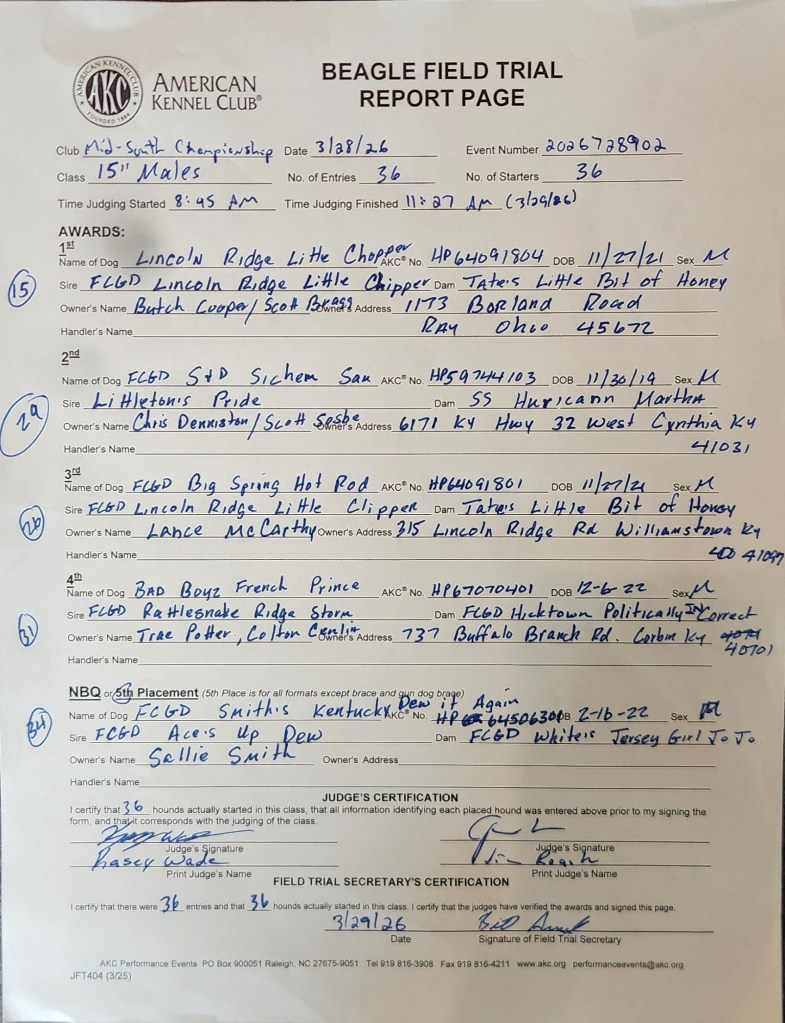 AMERICAN KENNEL CLUB
AKC
FOUNDED 1884
AMERICAN
KENNEL CLUB®
BEAGLE FIELD TRIAL
REPORT PAGE
Club Mid-South Championship Date 3/28/26 Event Number 2026728902
Class 15" Males No. of Entries 36 No. of Starters 36
Time Judging Started 8:45 AM Time Judging Finished 11:27 AM (3/29/26)
AWARDS:
1st
Name of Dog Lincoln Ridge Little Chopper AKC® No. HP64091804 DOB 11/27/21 Sex M
15 Sire FCGD Lincoln Ridge Little Chipper Dam Tate's Little Bit of Honey
Owner's Name Butch Cooper/Scott Bragg Owner's Address 1173 Borland Road
Handler's Name Ray Ohio 45672
2nd
Name of Dog FCGD S&D Sichem Sam AKC® No. HP59744103 DOB 11/30/19 Sex M
29 Sire Littleton's Pride Dam SS Huricann Martha
Owner's Name Chris Denniston/Scott Owner's Address 6171 Ky Hwy 32 West Cynthia Ky
Handler's Name 41031
3rd
Name of Dog FCGD Big Spring Hot Rod AKC® No. HP64091801 DOB 11/27/21 Sex M
26 Sire FCGD Lincoln Ridge Little Clipper Dam Tate's Little Bit of Honey
Owner's Name Lance McCarthy Owner's Address 315 Lincoln Ridge Rd Williamstown Ky
Handler's Name 41097
4th
Name of Dog Bad Boyz French Prince AKC® No. HP67070401 DOB 12-6-22 Sex M
31 Sire FCGD Rattlesnake Ridge Storm Dam FCGD Hicktown Politically In Correct
Owner's Name Trae Potter, Colton Owner's Address 737 Buffalo Branch Rd. Corbin Ky
40701
Handler's Name
NBQ or 5th Placement (5th Place is for all formats except brace and gun dog brace)
Name of Dog FCGD Smith's Kentucky Dew it Again AKC® No. HP 64506301 DOB 2-16-22 Sex M
34 Sire FCGD Ace's Up Dew Dam FCGD White's Jersey Girl Jo Jo
Owner's Name Sallie Smith Owner's Address
Handler's Name
JUDGE'S CERTIFICATION
I certify that 36 hounds actually started in this class, that all information identifying each placed hound was entered above prior to my signing the
form, and that it corresponds with the judging of the class.
Judge's Signature Judge's Signature
Kasey Wade Jim
Print Judge's Name Print Judge's Name
FIELD TRIAL SECRETARY'S CERTIFICATION
I certify that there were 36 entries and that 36 hounds actually started in this class. I certify that the judges have verified the awards and signed this page.
3/29/26
Date Signature of Field Trial Secretary
AKC Performance Events PO Box 900051 Raleigh, NC 27675-9051 Tel 919 816-3908 Fax 919 816-4211 www.akc.org performanceevents@akc.org
JFT404 (3/25)